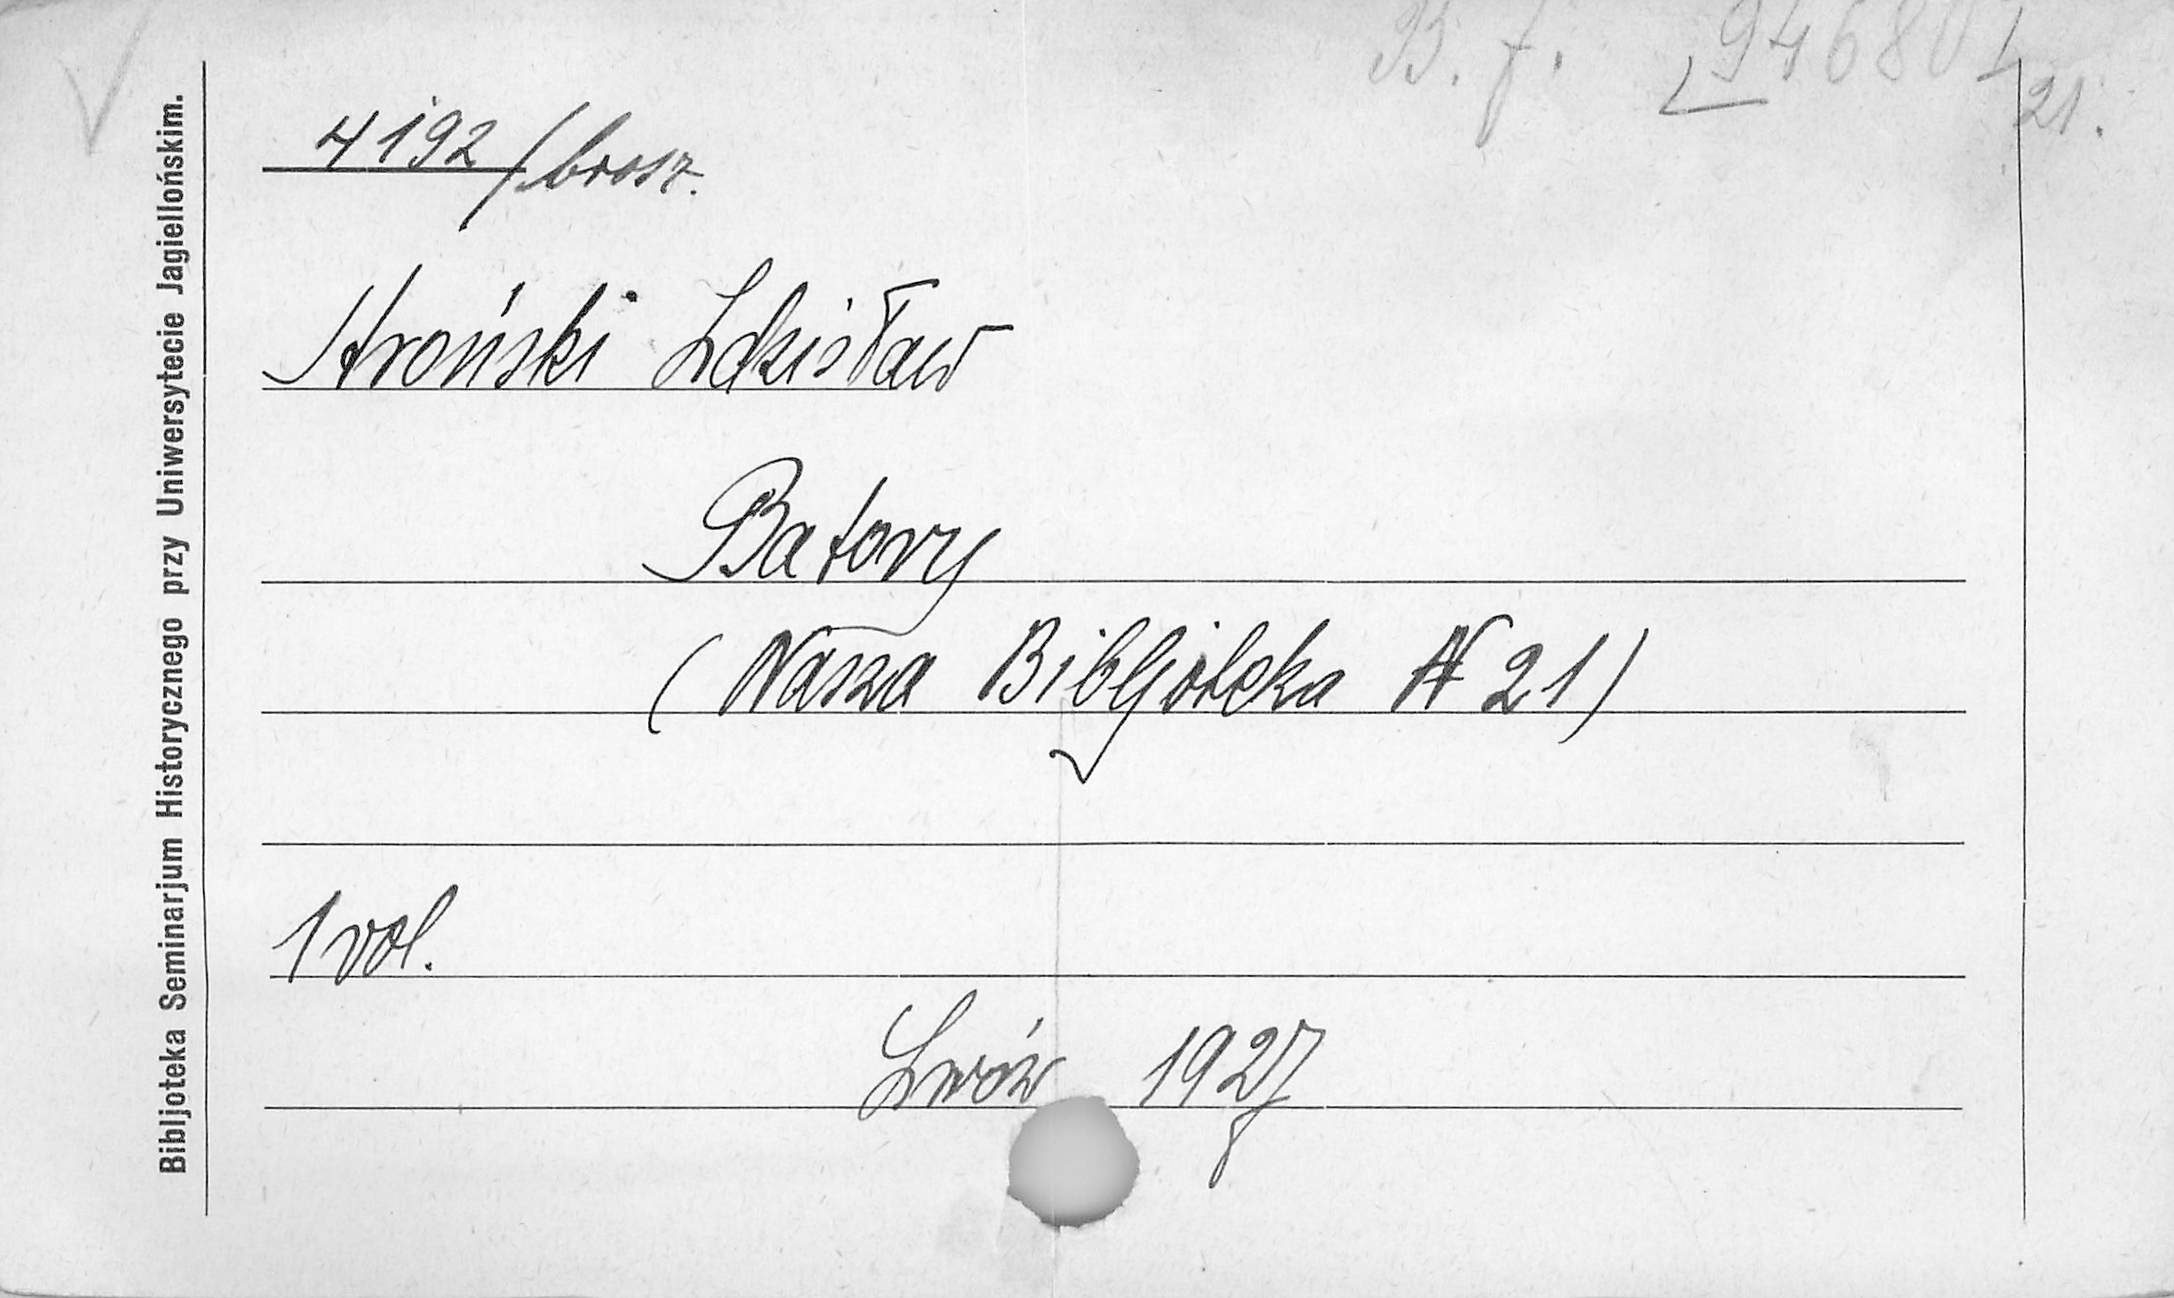 B. J. 946801 I
21.
4192/brosz.
Stroński Zdzisław
Batory
(Nasza Bibljoteka N 21)
1 vol.
Lwów 1927
Bibljoteka Seminarjum Historycznego przy Uniwersytecie Jagiellońskim.